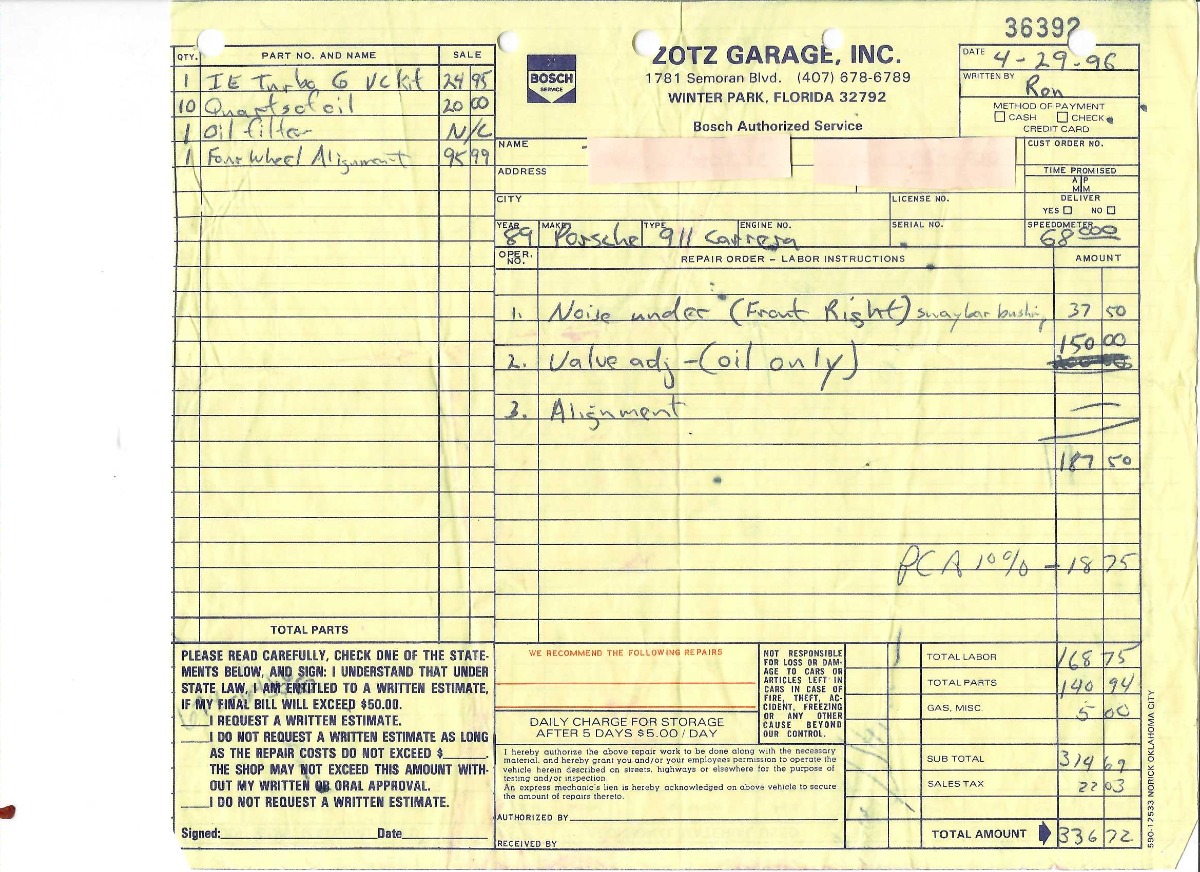 36392
QTY. PART NO. AND NAME SALE
1 IE Turbo G VC kit 24 95
10 Quarts of oil 20 00
1 Oil filter N/C
1 Four Wheel Alignment 95 99
TOTAL PARTS
BOSCH SERVICE
ZOTZ GARAGE, INC.
1781 Semoran Blvd. (407) 678-6789
WINTER PARK, FLORIDA 32792
Bosch Authorized Service
DATE 4-29-96
WRITTEN BY Ron
METHOD OF PAYMENT
CASH CHECK
CREDIT CARD
NAME CUST ORDER NO.
ADDRESS TIME PROMISED
A M P M
CITY LICENSE NO. DELIVER
YES NO
YEAR 89 MAKE Porsche TYPE 911 Carrera ENGINE NO. SERIAL NO. SPEEDOMETER 68000
OPER. NO. REPAIR ORDER – LABOR INSTRUCTIONS AMOUNT
1. Noise under (Front Right) swaybar bushing 37 50
2. Valve adj - (oil only) 150 00
3. Alignment —
187 50
PCA 10% - 18 75
PLEASE READ CAREFULLY, CHECK ONE OF THE STATE-
MENTS BELOW, AND SIGN: I UNDERSTAND THAT UNDER
STATE LAW, I AM ENTITLED TO A WRITTEN ESTIMATE,
IF MY FINAL BILL WILL EXCEED $50.00.
I REQUEST A WRITTEN ESTIMATE.
I DO NOT REQUEST A WRITTEN ESTIMATE AS LONG
AS THE REPAIR COSTS DO NOT EXCEED $
THE SHOP MAY NOT EXCEED THIS AMOUNT WITH-
OUT MY WRITTEN OR ORAL APPROVAL.
I DO NOT REQUEST A WRITTEN ESTIMATE.
Signed: Date
WE RECOMMEND THE FOLLOWING REPAIRS
DAILY CHARGE FOR STORAGE
AFTER 5 DAYS $5.00 / DAY
NOT RESPONSIBLE
FOR LOSS OR DAM-
AGE TO CARS OR
ARTICLES LEFT IN
CARS IN CASE OF
FIRE, THEFT, AC-
CIDENT, FREEZING
OR ANY OTHER
CAUSE BEYOND
OUR CONTROL.
I hereby authorize the above repair work to be done along with the necessary
material, and hereby grant you and/or your employees permission to operate the
vehicle herein described on streets, highways or elsewhere for the purpose of
testing and/or inspection
An express mechanic's lien is hereby acknowledged on above vehicle to secure
the amount of repairs thereto.
AUTHORIZED BY
RECEIVED BY
TOTAL LABOR 168 75
TOTAL PARTS 140 94
GAS, MISC. 5 00
SUB TOTAL 314 69
SALES TAX 22 03
TOTAL AMOUNT 336 72
590-1-2533 NORICK OKLAHOMA CITY